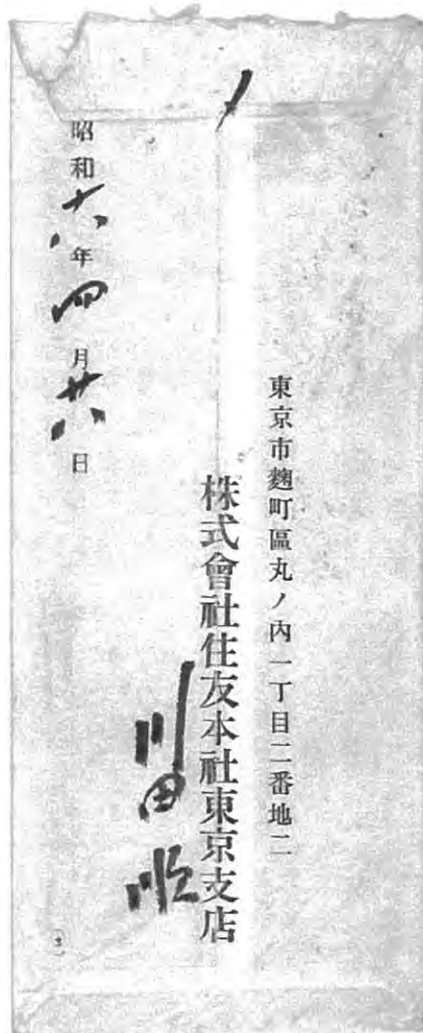 東京市麴町區丸ノ内一丁目二番地二
株式會社住友本社東京支店
川田順
昭和十八年四月廿八日